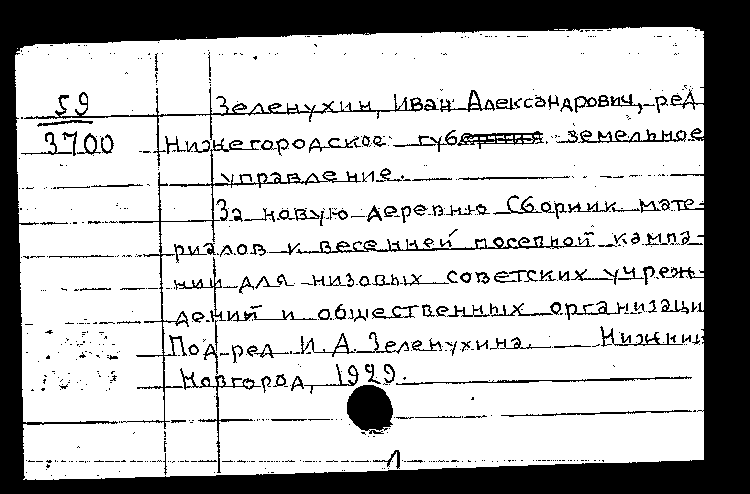 59
3700
Зеленухин, Иван Александрович, ред
Нижегородское губерния земельное
управление.
За новую деревню Сборник мате-
риалов к весенней посевной кампа-
нии для низовых советских учреж-
дений и общественных организаци
Под ред И. А. Зеленухина. Нижний
Новгород, 1929.
1